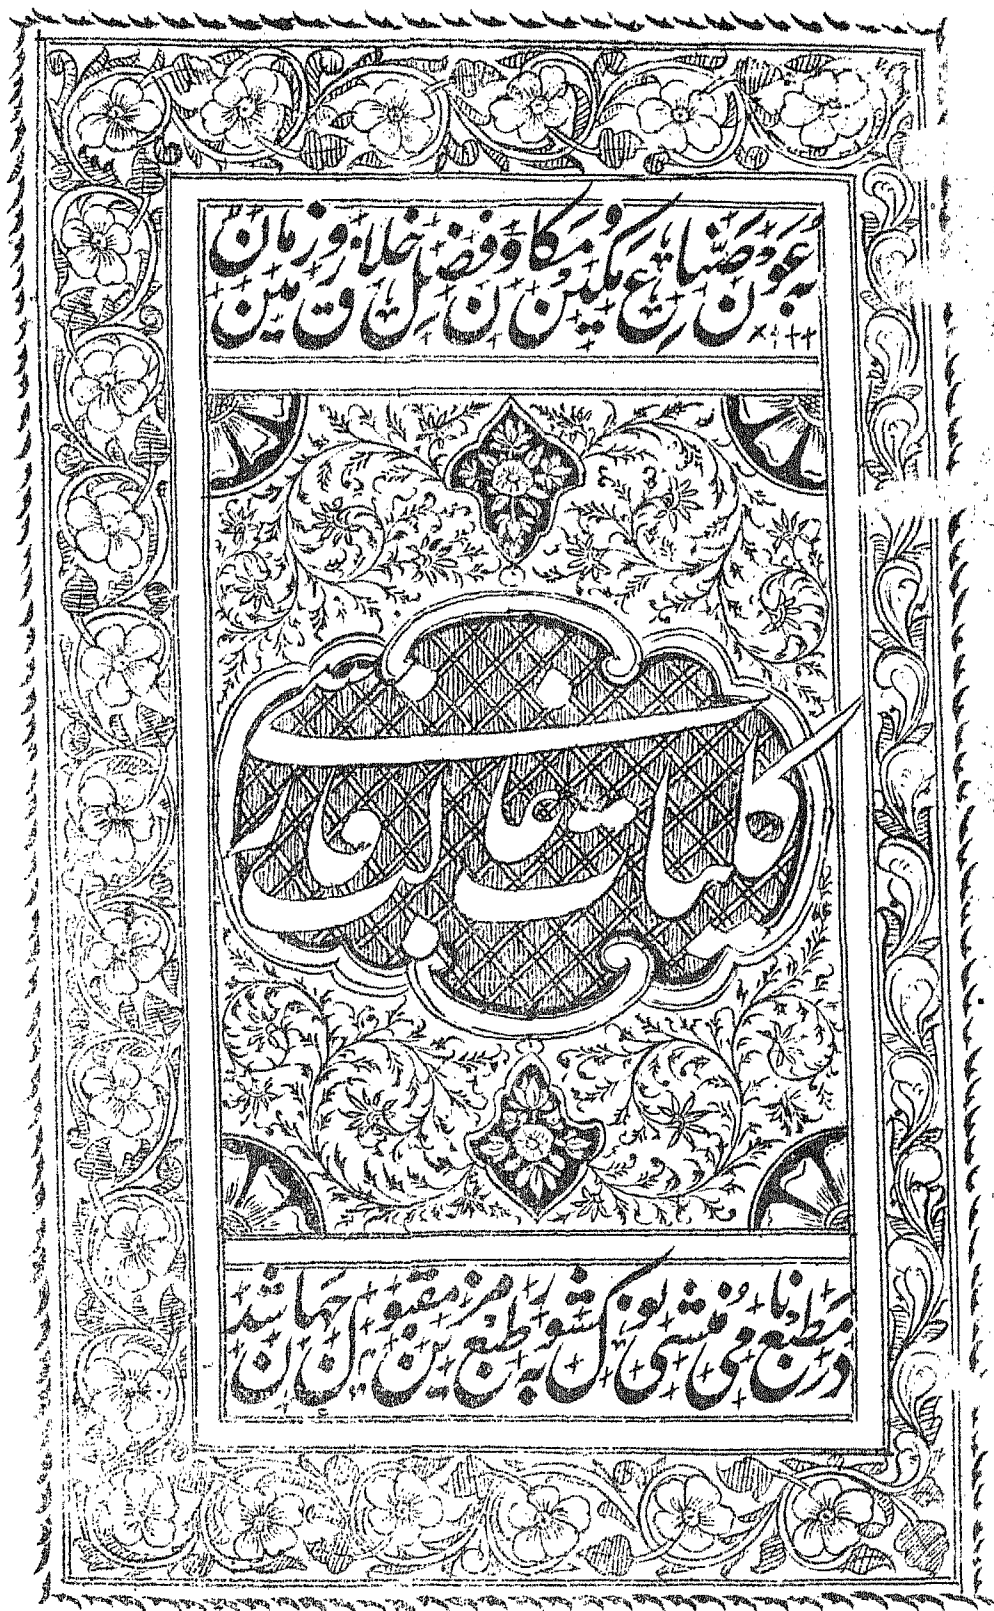 بعون صناع مکین و مکان و فضل خلاق زمین و زمان
کلیات غالب فارسی
در مطبع نامی منشی نولکشور بطبع مزین مقبول جهان شد